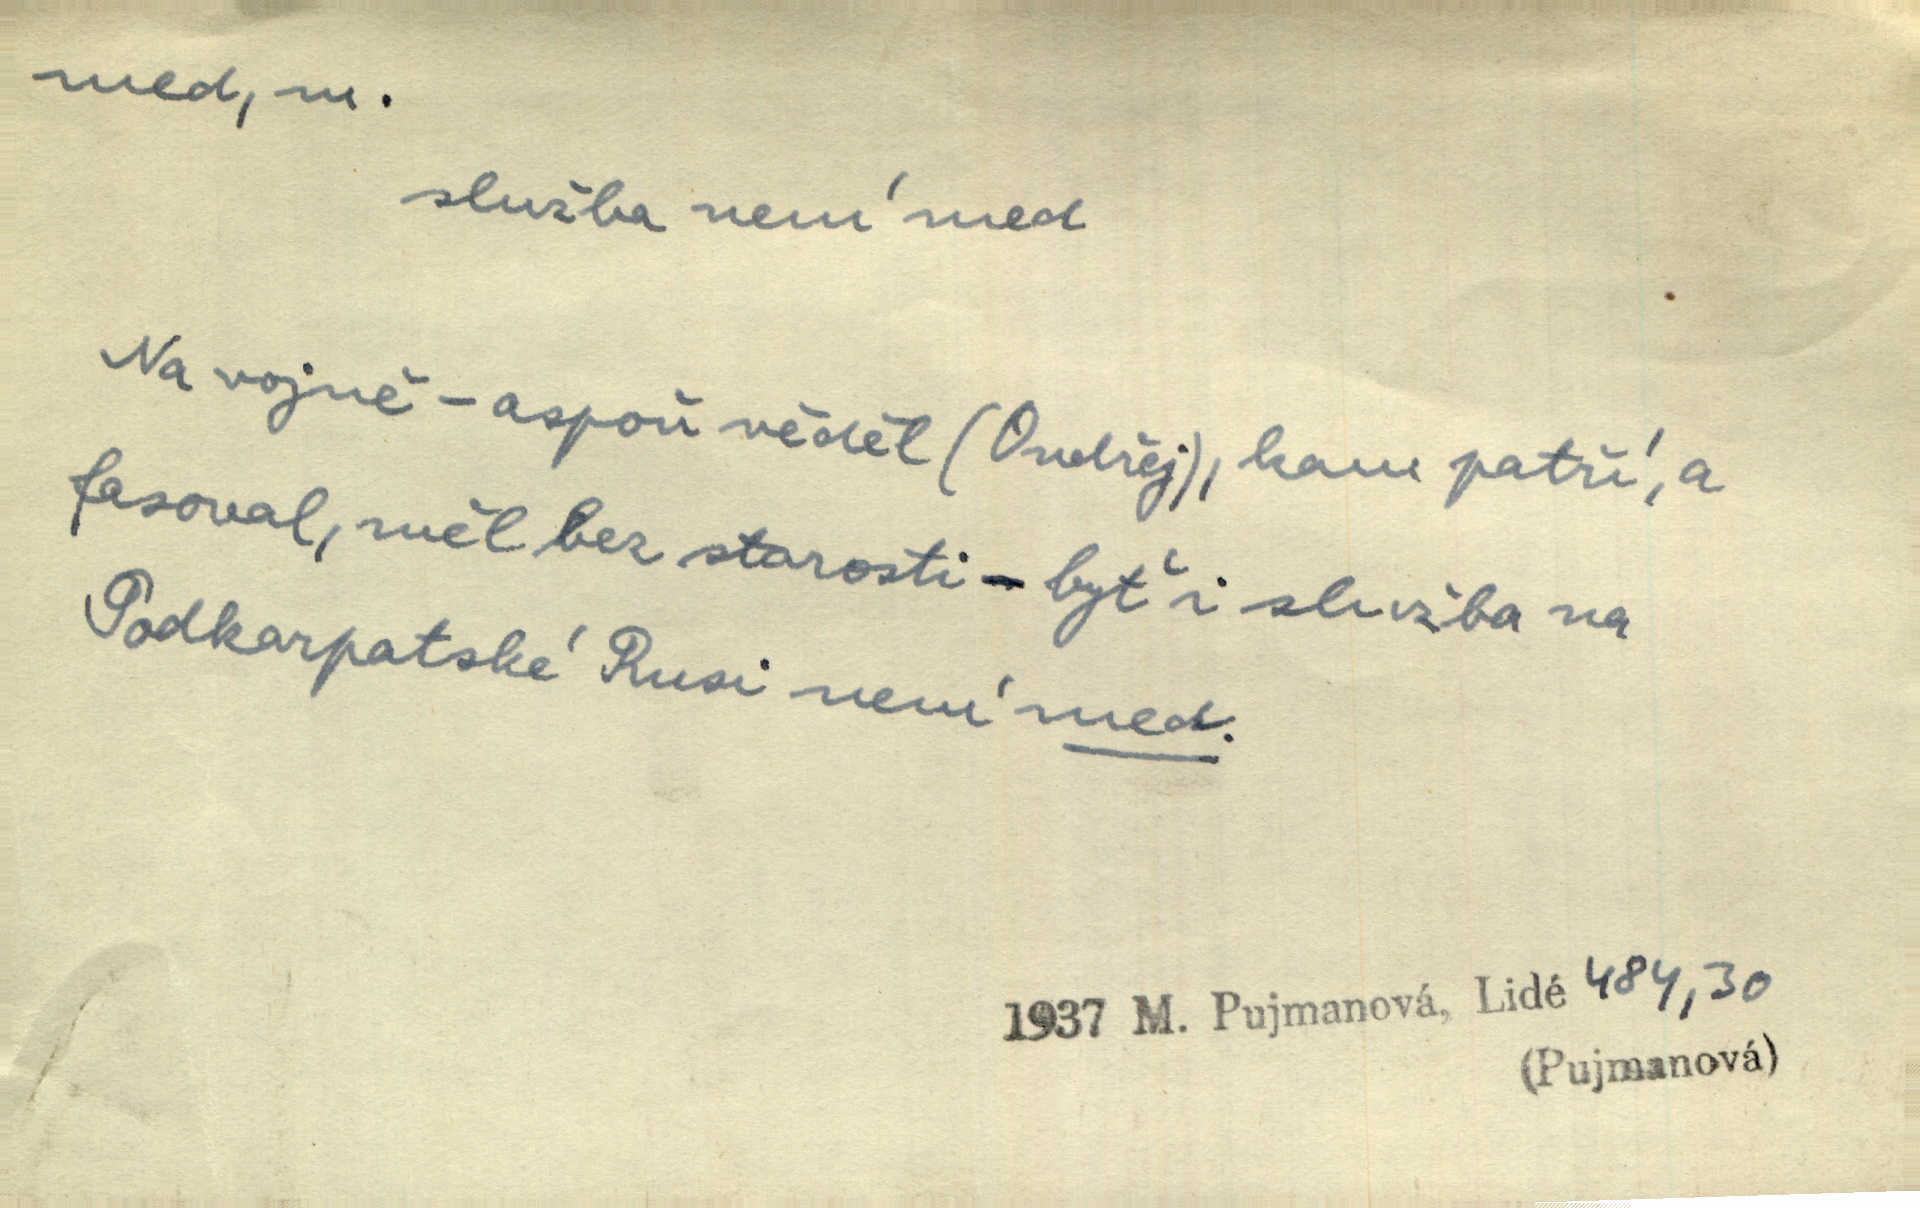 med, m.
služba není med
Na vojně - aspoň věděl (Ondřej), kam patří, a
fasoval, měl bez starosti - byť i služba na
Podkarpatské Rusi není med.
1937 M. Pujmanová, Lidé 484,30
(Pujmanová)